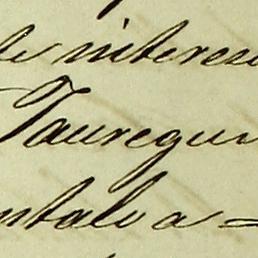 de interes
Tauregui
ntalva =